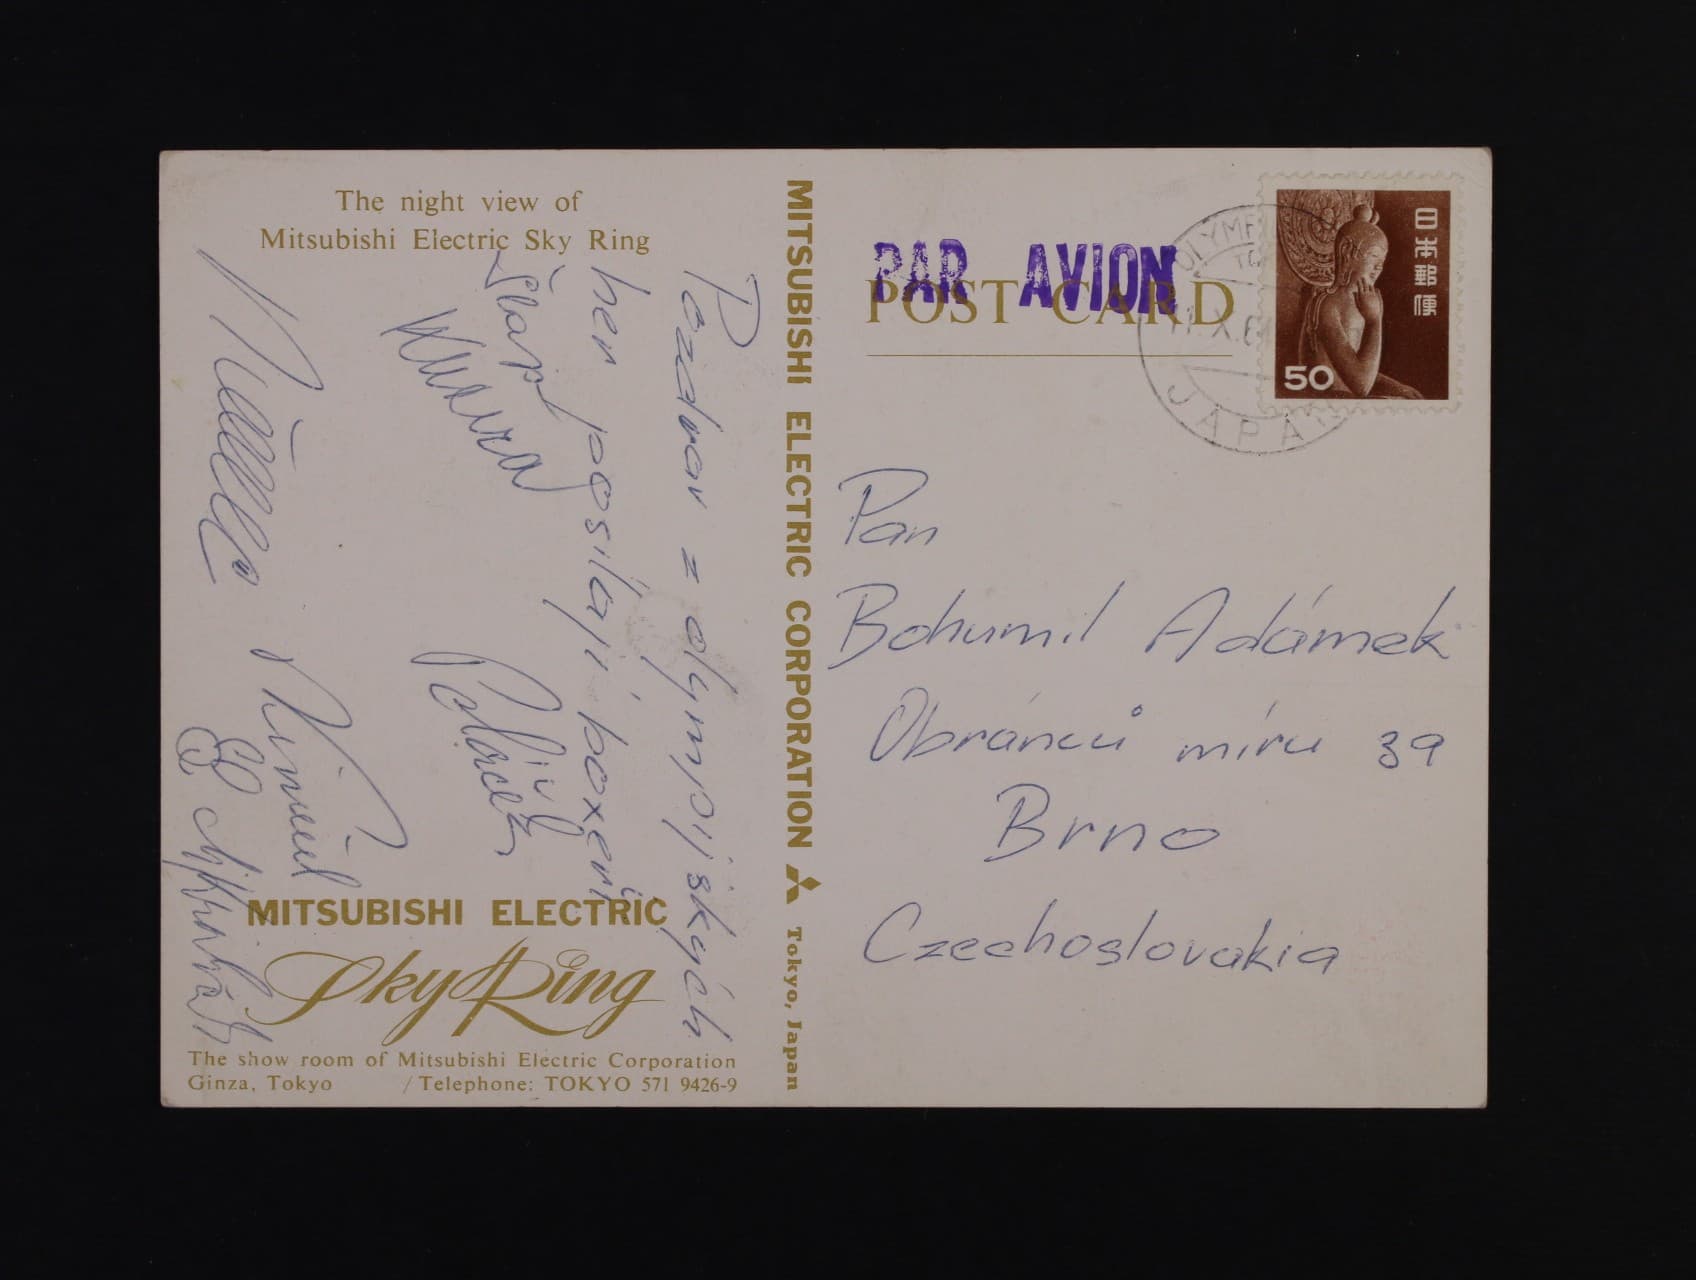 The night view of
Mitsubishi Electric Sky Ring
Pozdrav z olympijských
her posílají boxeři
Šlapl
Kučera
Poláček
Němec
MITSUBISHI ELECTRIC
Sky Ring
The show room of Mitsubishi Electric Corporation
Ginza, Tokyo / Telephone: TOKYO 571 9426-9
MITSUBISHI ELECTRIC CORPORATION Tokyo, Japan
PAR AVION
POST CARD
JAPAN
日本郵便
50
Pan
Bohumil Adámek
Obránců míru 39
Brno
Czechoslovakia